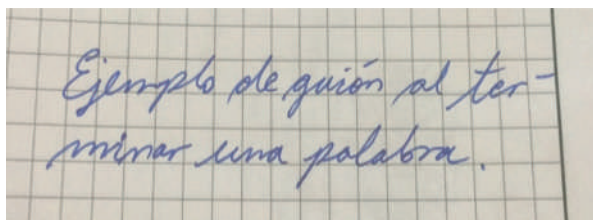 Ejemplo de guión al ter-
minar una palabra.